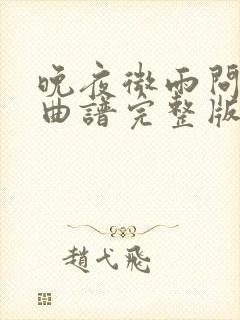 晚夜微雨問
曲譜完整版
趙弋飛